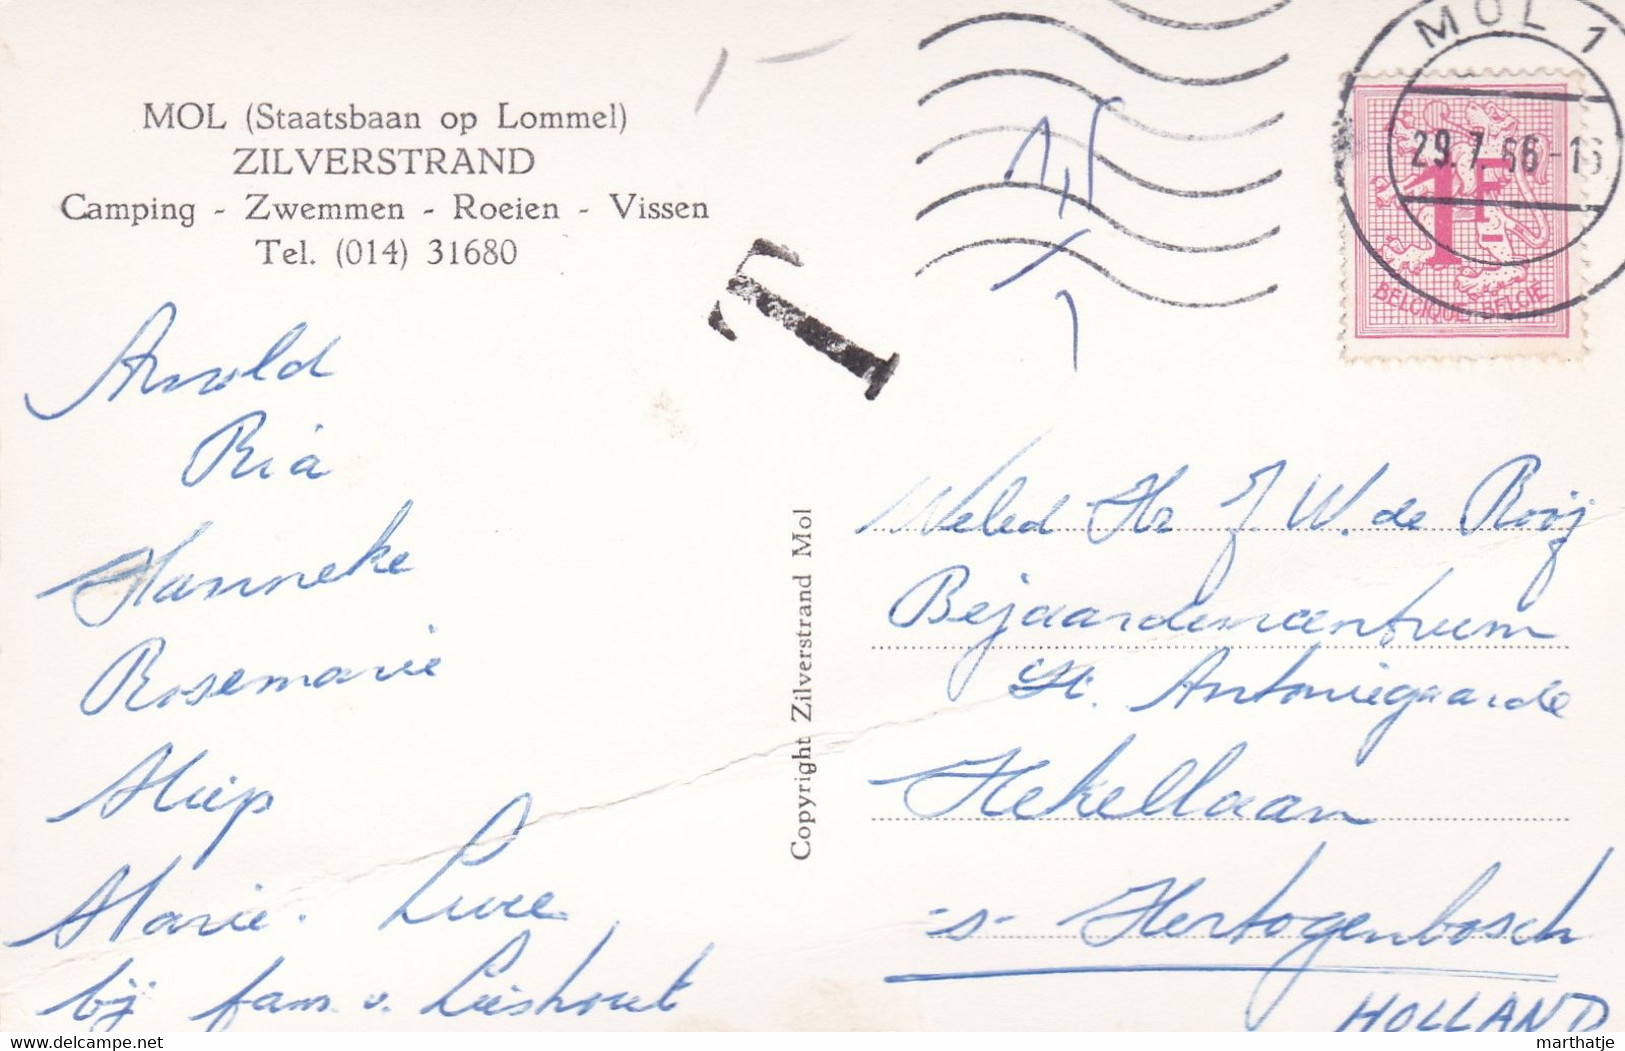 MOL (Staatsbaan op Lommel)
ZILVERSTRAND
Camping - Zwemmen - Roeien - Vissen
Tel. (014) 31680
Arnold
Ria
Hanneke
Rosemarie
Miep
Marie. Luce
bij fam. v. Lieshout
T
Copyright Zilverstrand Mol
MOL 1
29.7.66-16
1F
BELGIQUE-BELGIË
Weled Hr J. W. de Rooij
Bejaardencentrum
St. Antoniegaarde
Hekellaan
-s- Hertogenbosch
HOLLAND
www.delcampe.net
marthatje